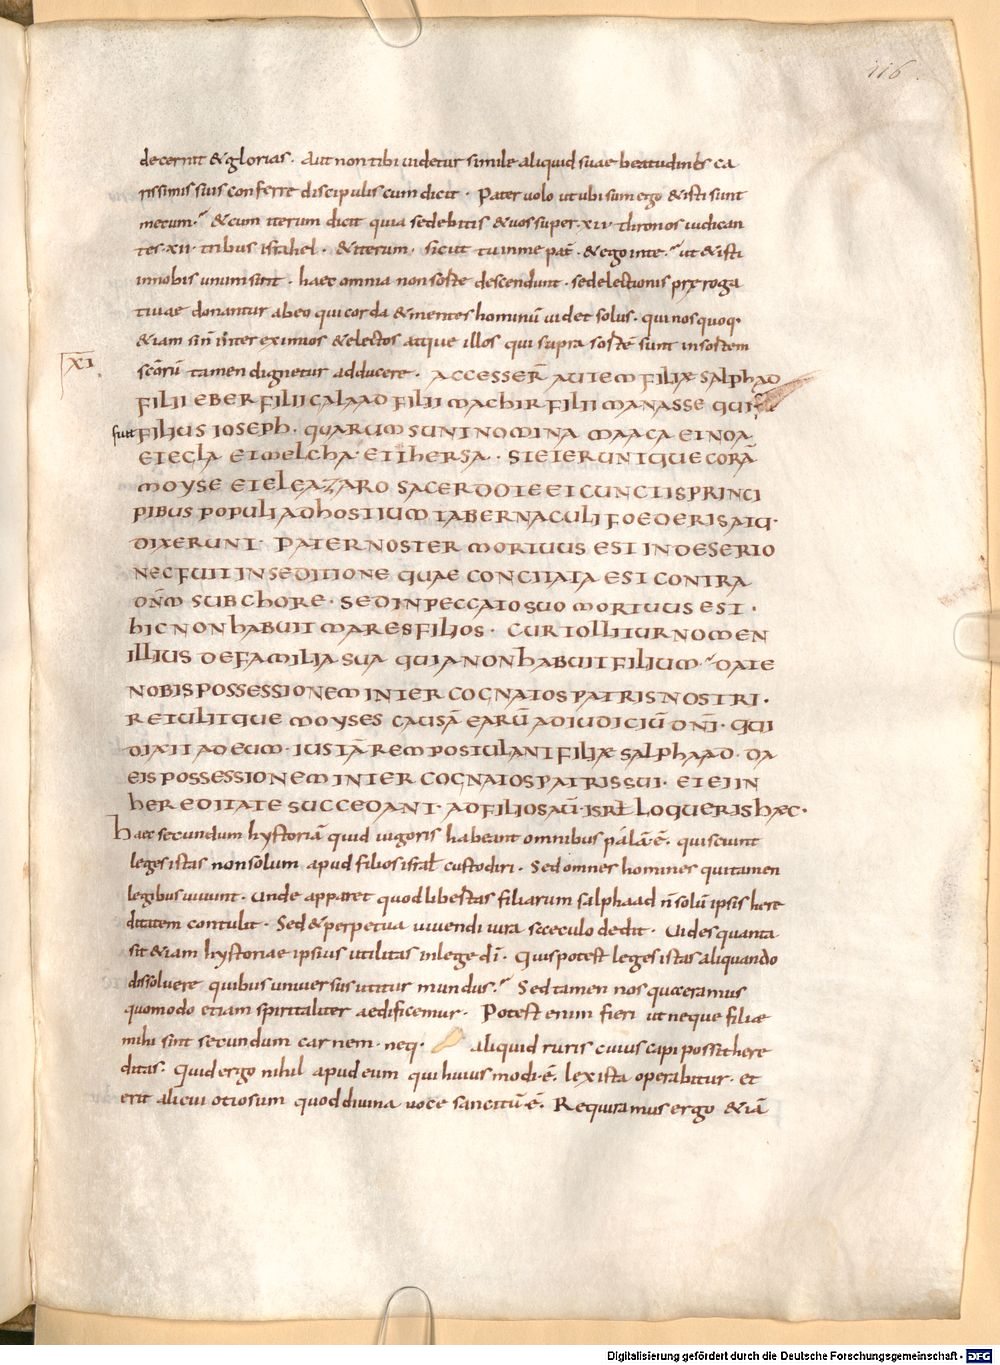 116
decernit & glorias. Aut non tibi uidetur simile aliquid suae beatudinis ca
rissimis suis conferre discipulis cum dicit. Pater uolo ut ubi sum ego & isti sunt
mecum. & cum iterum dicit quia sedebitis & uos super .xii. thronos iudican
tes .xii. tribus israhel. & iterum. sicut tu in me pat̄. & ego in te. ut & isti
in nobis unum sint. haec omnia non sorte descendunt. sed electionis prerroga
tiuae donantur ab eo qui corda & mentes hominū uidet solus. qui nos quoq.
& iam sin̄ inter eximios & electos atque illos qui supra sortē sunt in sortem
XI
sc̄orū tamen dignetur adducere. ACCESSER̄ AUTEM FILIÆ SALPHAD
FILII EBER FILII GALAAD FILII MACHIR FILII MANASSE QUI
fuit FILIUS IOSEPH. QUARUM SUNT NOMINA MAACA ET NOA
ET ECLA ET MELCHA. ET THERSA. STETERUNTQUE CORĀ
MOYSE ET ELEAZARO SACERDOTE ET CUNCTIS PRINCI
PIBUS POPULI AD HOSTIUM TABERNACULI FOEDERIS ATQ.
DIXERUNT. PATER NOSTER MORTUUS EST IN DESERTO
NEC FUIT IN SEDITIONE QUAE CONCITATA EST CONTRA
DN̄M SUB CHORE. SED IN PECCATO SUO MORTUUS EST.
HIC NON HABUIT MARES FILIOS. CUR TOLLITUR NOMEN
ILLIUS DE FAMILIA SUA QUIA NON HABUIT FILIUM. DATE
NOBIS POSSESSIONEM INTER COGNATOS PATRIS NOSTRI.
RETULITQUE MOYSES CAUSĀ EARŪ AD IUDICIŪ DN̄I. QUI
DIXIT AD EUM. IUSTĀ REM POSTULANT FILIÆ SALPHAAD. DA
EIS POSSESSIONEM INTER COGNATOS PATRIS SUI. ET EI IN
HEREDITATE SUCCEDANT. AD FILIOS AŪ. ISRL̄ LOQUERIS HÆC.
Haec secundum hystoriā quid uigoris habeant omnibus palā. ē. qui sciunt
leges istas non solum apud filios isral̄ custodiri. Sed omnes homines qui tamen
legibus uiuunt. unde apparet quod libertas filiarum salphaad n̄ solū ipsis here
ditatem contulit. Sed & perpetua uiuendi iura sececulo dedit. Uides quanta
sit & iam hystoriae ipsius utilitas in lege dī. Quis potest leges istas aliquando
dissoluere quibus uniuersus utitur mundus. Sed tamen nos queramus
quomodo etiam spiritaliter aedificemur. Potest enim fieri ut neque filiæ
mihi sint secundum carnem. neq. aliquid ruris cuius capi possit here
ditas. Quid ergo nihil apud eum qui huius modi. ē. lex ista operabitur. et
erit alicui otiosum quod diuina uoce sancitū. ē. Requiramus ergo & iā
Digitalisierung gefördert durch die Deutsche Forschungsgemeinschaft - DFG